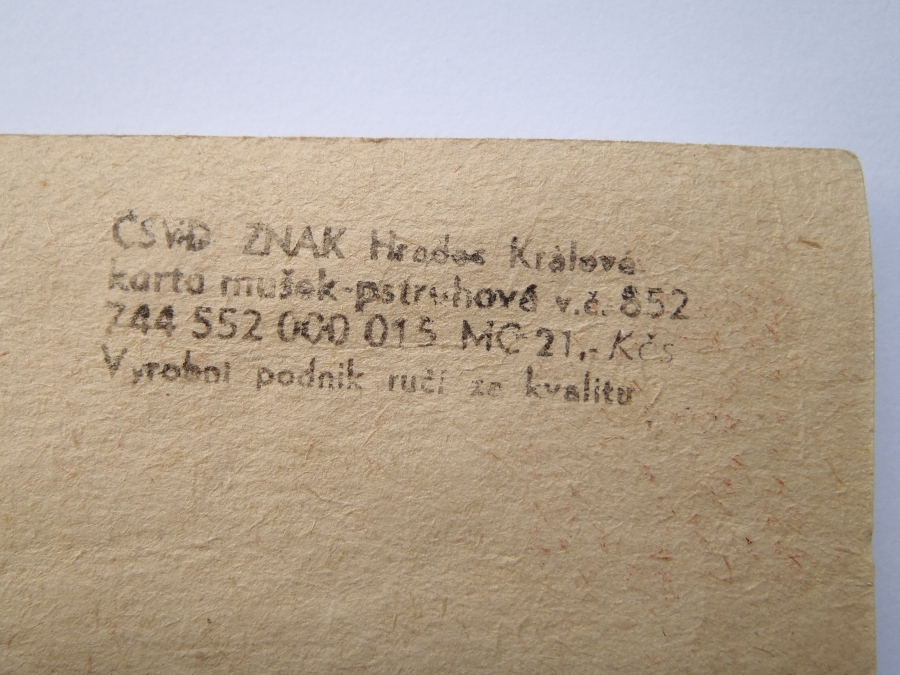 ČSVD ZNAK Hradec Králové
karta mušek-pstruhové v.č. 852
744 552 000 015 MC 21,- Kčs
Vyrobní podnik ručí za kvalitu